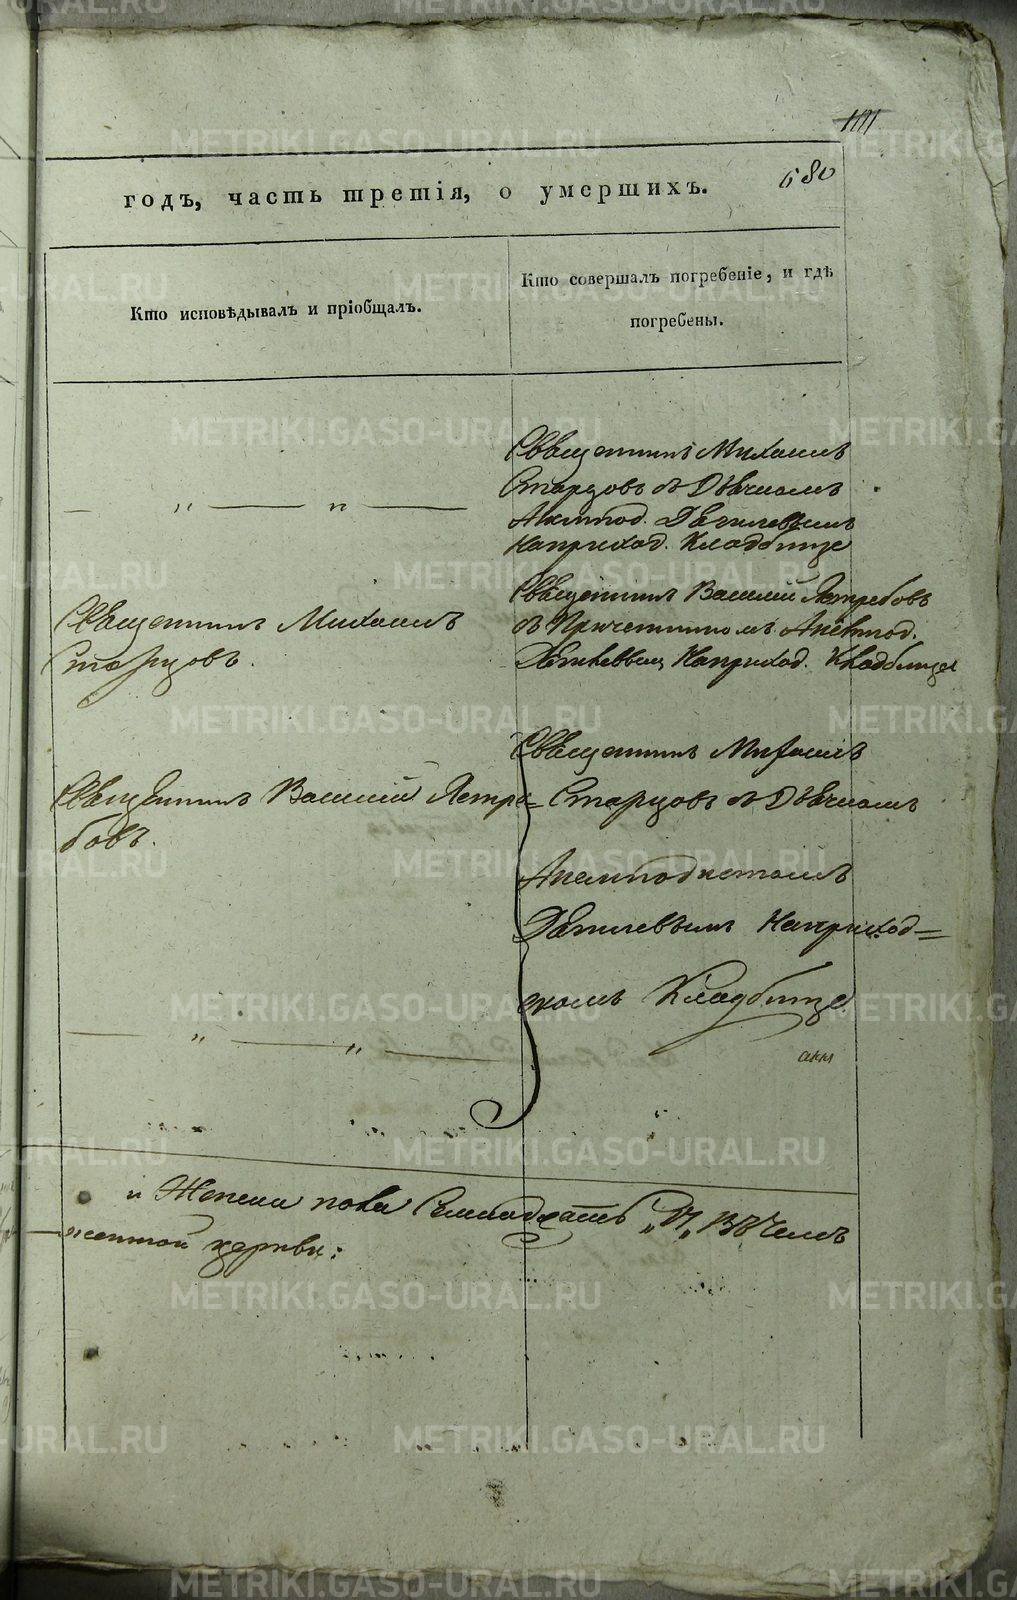 680
годъ, часть третія, о умершихъ.
Кто исповѣдывалъ и пріобщалъ.
Кто совершалъ погребеніе, и гдѣ
погребены.
Священникъ Михаилъ
Старцовъ съ Дьячкомъ
Наприход. Кладбище
Священникъ Михаилъ
Старцовъ.
Священникъ Василій Ястребовъ
съ Причетникомъ
Наприход. Кладбище
Священникъ Василій Ястре=
бовъ.
Священникъ Михаилъ
Старцовъ съ Дьячкомъ
Наприход=
скомъ Кладбище
и Женска пола Семнадцать „17„ В
церкви:
METRIKI.GASO-URAL.RU